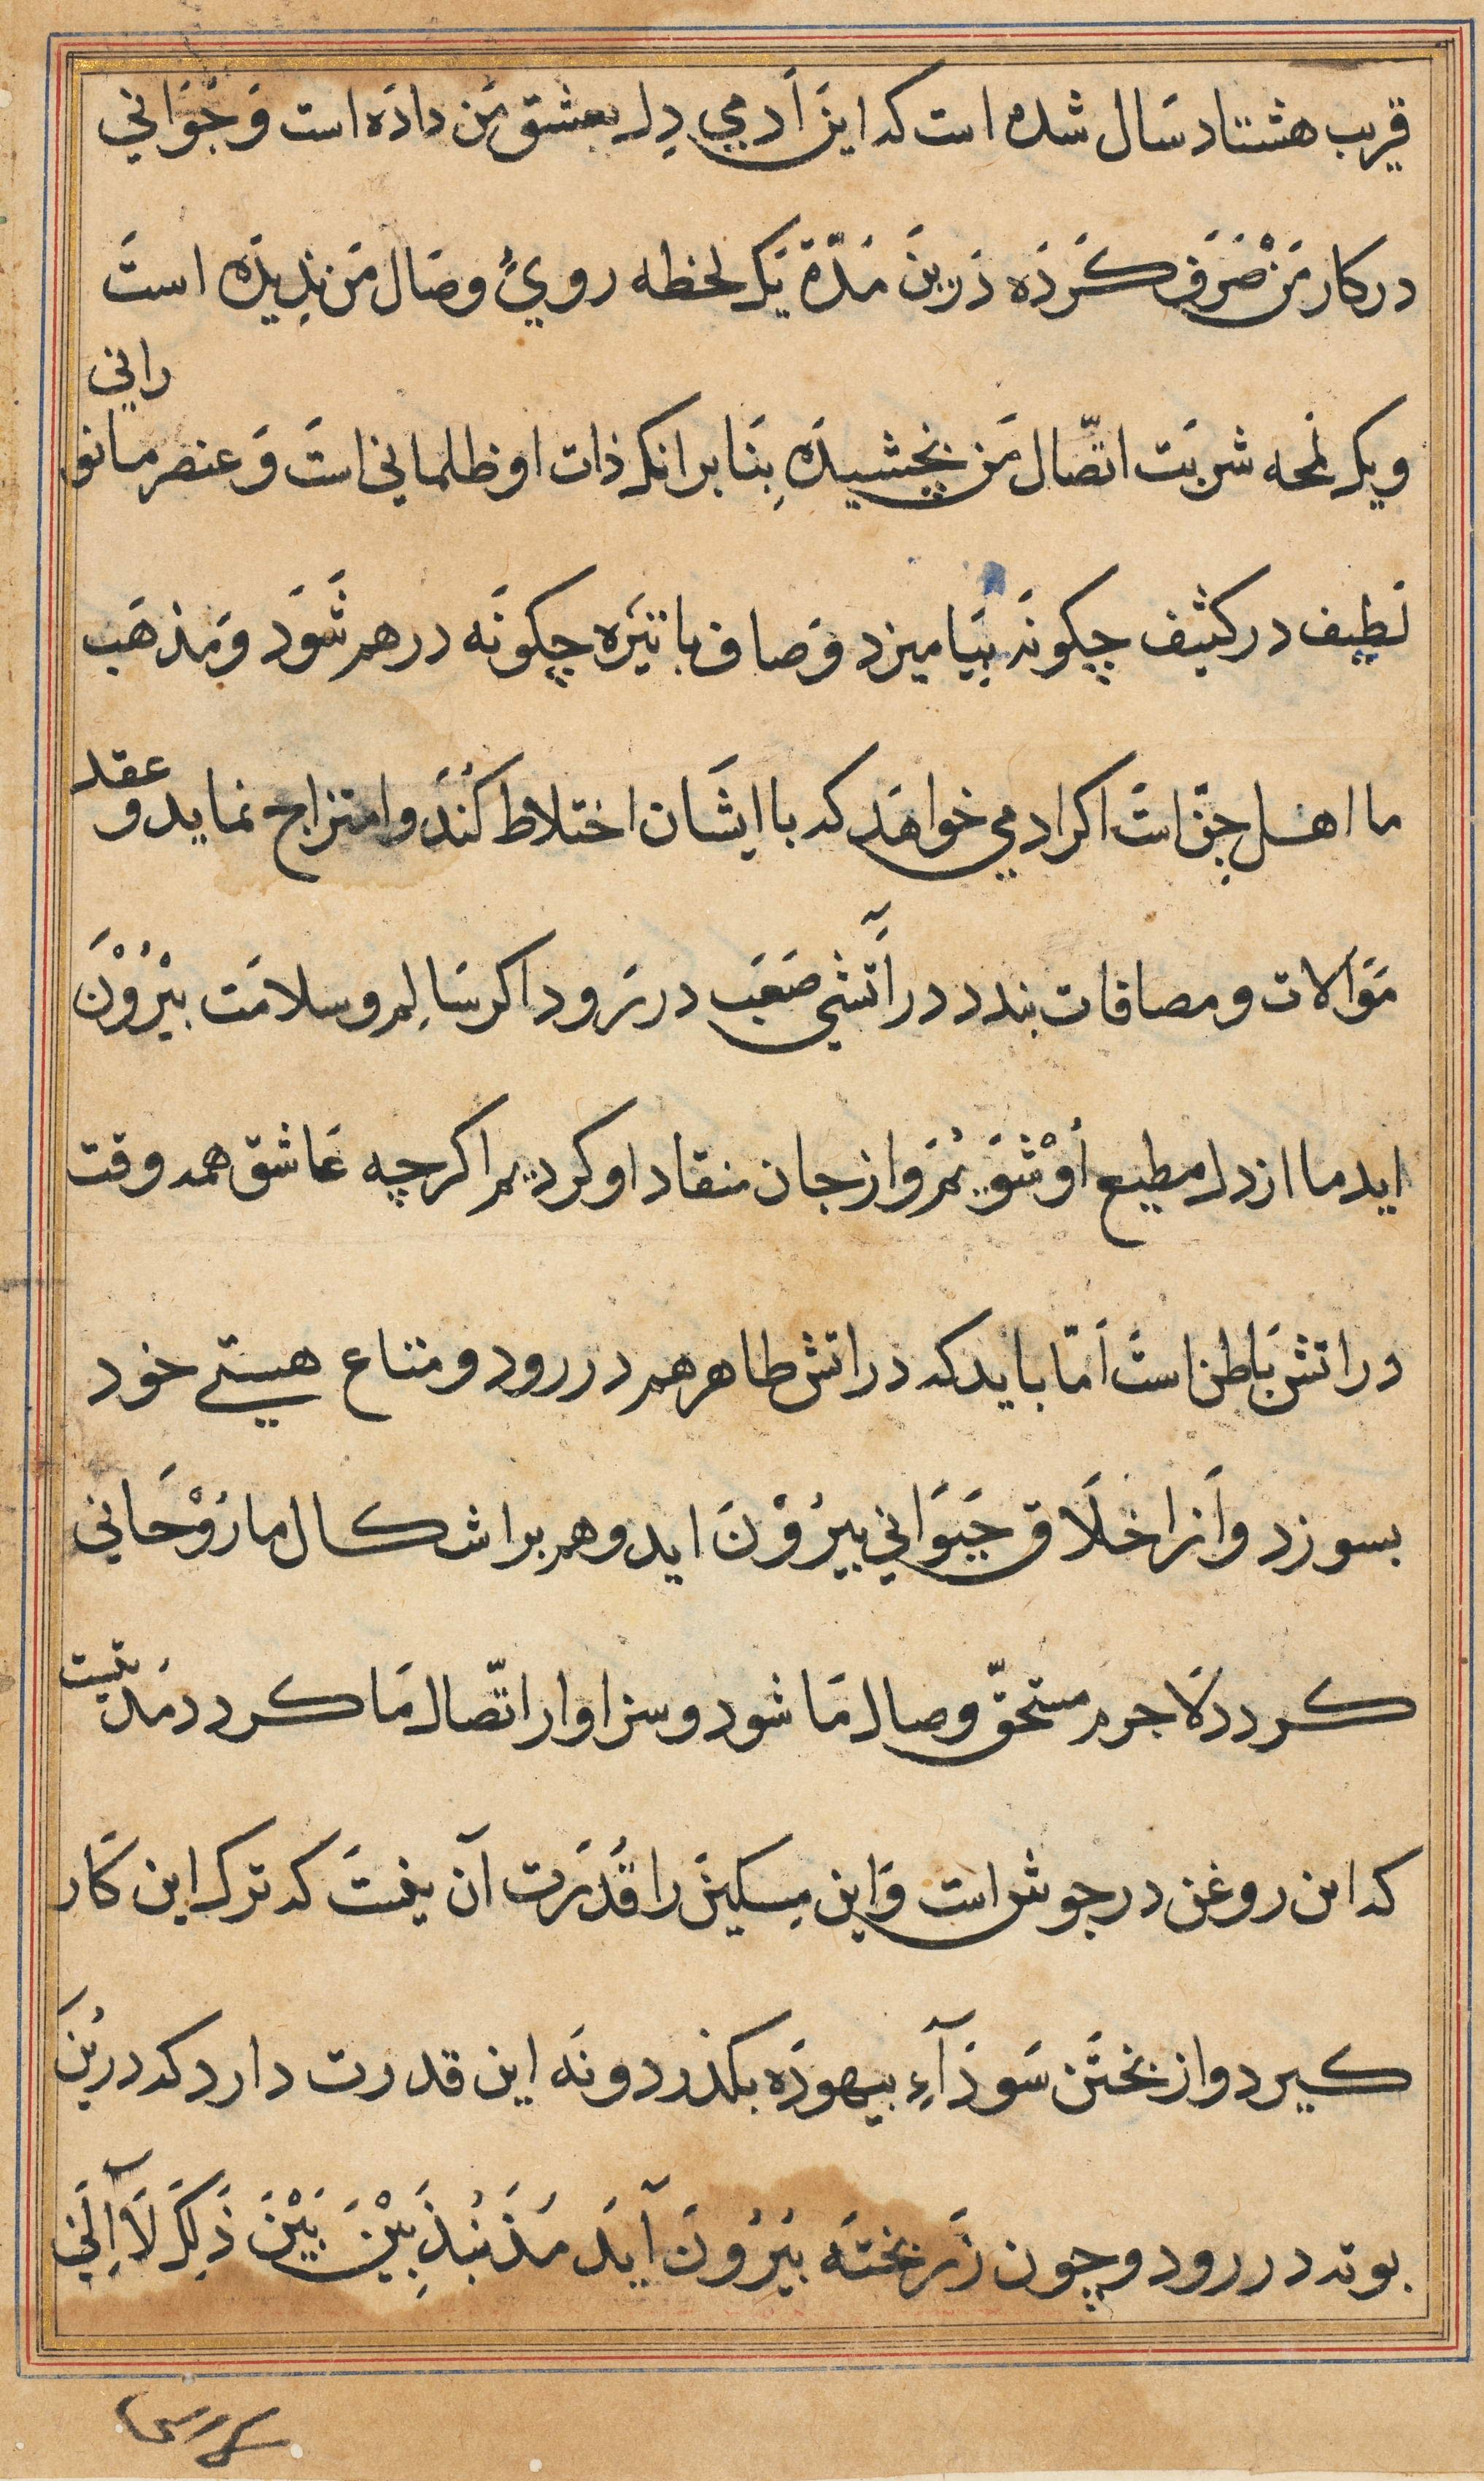 قریب هشتاد سَال شده است که اینَ اَدمی دِل بعشق مَن دادَه است وَ جَوَانی
در کار مَنْ صَرَف کَردَه دَرینَ مَدّة یَک لحظه رویُ وصَال مَن ندِیدَه استَ
و یک لَمحه شربَت اتّصال مَن نچشیدَه بِنَا برانک ذات او ظلمانی استَ وَ عنصر ما نو
رانی
لَطِیف در کثیف چکونَه بِیَامیزد وَ صاف با تیَره چکونَه در هم شَوَد وَ مَذهَب
ما اهل جِنّ استَ اکر ادمی خواهَد که با ایشَان اختلاط کُنَدَ و امتزاج نماید و
عقد
مَوَالات و مصافات بندد در آتشی صَعَب در رَود اکر سَالِم و سلامَت بیْرُوْنَ
اید ما از دل مطیع اَوْ شَوَیُم وَ از جان منقاد او کردیم اکر چه عَاشق همه وقت
در اتش بَاطن استَ اَمّا باید که در اتش ظاهر هم در رود و متاع هستی خود
بسوزد و اَز اخلَاق حَیَوَانی بیرُوْنَ اید و هم بر اشکال ما رَوْحَانی
کردد لَا جرم مستحقّ وصال مَا شود و سزاوار اتّصال مَا کردد مَد
تیست
که این روغن در جوش است وَ این مِسکینَ را قُدَرَت آن نیستَ که ترک این کَار
کیرد و از پختَن سَودَآءِ بیهودَه بکذرد و نَه این قدرت دارد که درینَ
بوته در رود و چون زَر پختَه بَیَرُونَ آیَد مَذَبْذَبِیْنَ بَیْنَ ذَلِکَ لَآ اِلَی